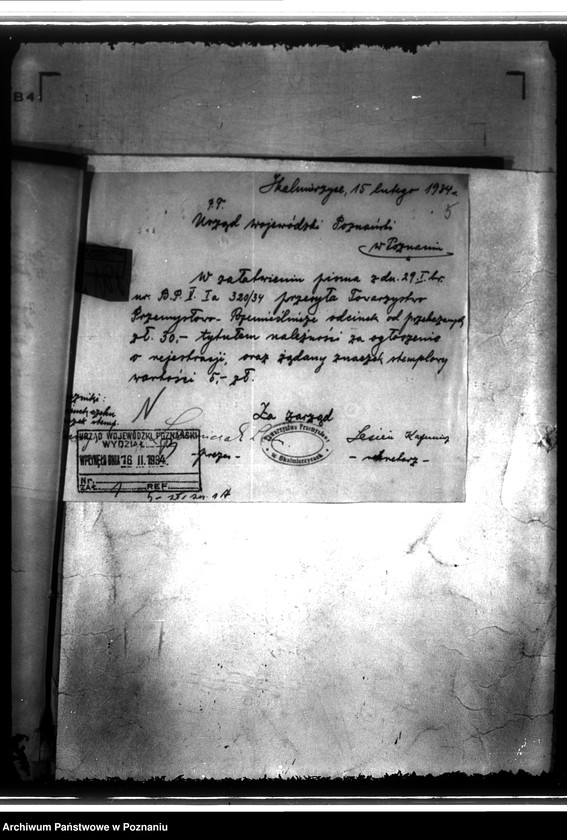 B4
Skalmierzyce, 15 lutego 1934 r.
5
Urząd wojewódzki Poznański
w Poznaniu
W załatwieniu pisma z dn. 29.I. br.
nr. B.P.V. Ia 320/34 przesyła Towarzystwo
Przemysłowo-Rzemieślnicze odcinek od przekazanych
zł. 30,- tytułem należności za ogłoszenie
o rejestracji, oraz żądany znaczek stemplowy
wartości 5,- zł.
Za zarząd
Towarzystwo Przemysłowe
w Skalmierzycach
- prezes -
- sekretarz -
URZĄD WOJEWÓDZKI POZNAŃSKI
WYDZIAŁ
WPŁYNĘŁO DNIA 16 II. 1934.
Nr.
ZAŁ. 1 REF.
Archiwum Państwowe w Poznaniu